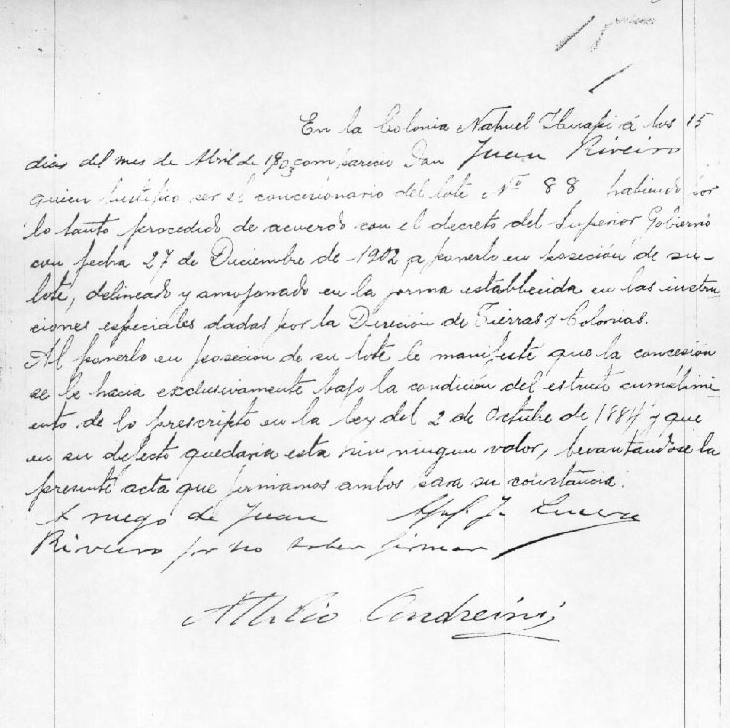 En la Colonia Nahuel Huapi á los 15
dias del mes de Abril de 1903 comparecio Don Juan Riveiro
quien justifico ser el concesionario del lote Nº 88 habiendo por
lo tanto procedido de acuerdo con el decreto del Superior Gobierno
con fecha 27 de Diciembre de 1902, a ponerlo en poseción de su-
lote, delineado y amojonado en la forma establecida en las instru-
ciones especiales dadas por la Direción de Tierras y Colonias.
Al ponerlo en poseción de su lote le manifesté que la concesión
se le hacia exclusivamente bajo la condición del estricto cumplimi
ento de lo prescripto en la ley del 2 de Octubre de 1884 y que
en su defecto quedaria esta sin ningun valor, levantandose la
presente acta que firmamos ambos para su constancia.
A ruego de Juan
Riveiro por no saber firmar
Atilio Andreini